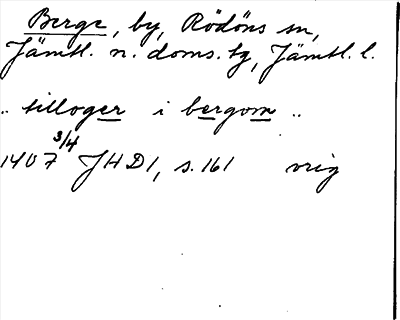 Berge, by, Rödöns sn,
Jämtl. n. doms. tg, Jämtl. l.
.. tilloger i bergom ..
1407 3/4 JHD1, s. 161 vrig